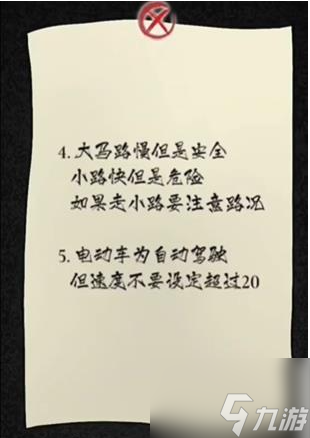 4. 大马路慢但是安全
小路快但是危险
如果走小路要注意路况
5. 电动车为自动驾驶
但速度不要设定超过20
九游